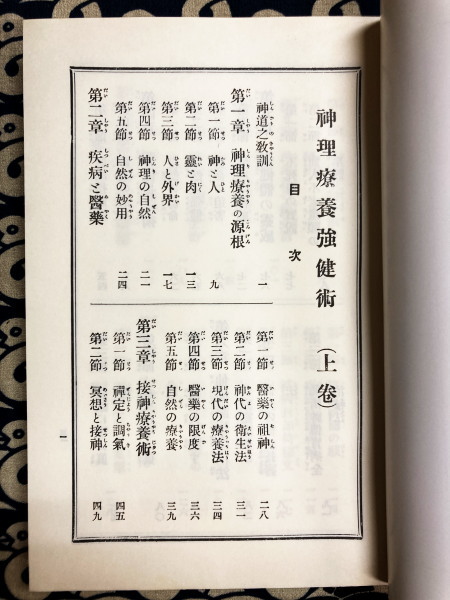 神理療養強健術（上卷）
目次
神道之敎訓 一
第一章 神理療養の源根
第一節 神と人 九
第二節 靈と肉 一三
第三節 人と外界 一七
第四節 神理の自然 二一
第五節 自然の妙用 二四
第二章 疾病と醫藥
第一節 醫藥の祖神 二八
第二節 神代の衞生法 三一
第三節 現代の療養法 三四
第四節 醫藥の限度 三六
第五節 自然の療養 三九
第三章 接神療養術
第一節 禪定と調氣 四五
第二節 冥想と接神 四九
一